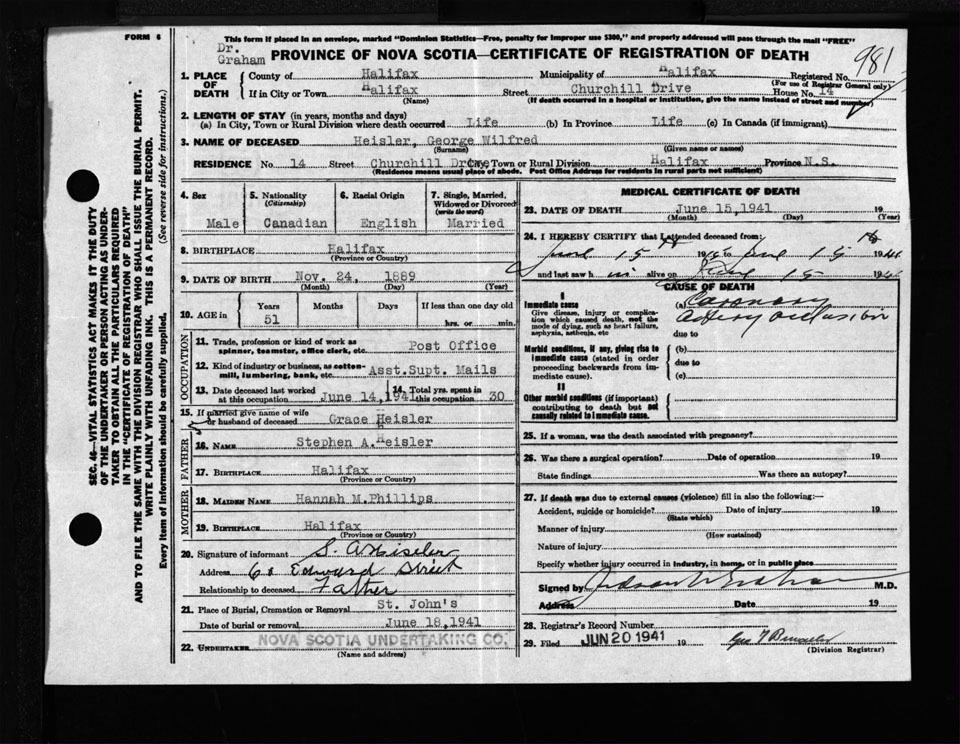 FORM 6
This form if placed in an envelope, marked "Dominion Statistics—Free, penalty for improper use $300," and properly addressed will pass through the mail "FREE"
Dr.
Graham
PROVINCE OF NOVA SCOTIA—CERTIFICATE OF REGISTRATION OF DEATH
981
1. PLACE OF DEATH
County of Halifax Municipality of Halifax Registered No.
(For use of Registrar General only)
If in City or Town Halifax Street Churchill Drive House No. 14
(Name) (If death occurred in a hospital or institution, give the name instead of street and number)
2. LENGTH OF STAY (in years, months and days)
(a) In City, Town or Rural Division where death occurred Life (b) In Province Life (c) In Canada (if immigrant)
3. NAME OF DECEASED Heisler, George Wilfred
(Surname) (Given name or names)
RESIDENCE No. 14 Street Churchill Drive City, Town or Rural Division Halifax Province N.S.
(Residence means usual place of abode. Post Office Address for residents in rural parts not sufficient)
4. Sex
Male
5. Nationality
(Citizenship)
Canadian
6. Racial Origin
English
7. Single, Married, Widowed or Divorced
(write the word)
Married
8. BIRTHPLACE Halifax
(Province or Country)
9. DATE OF BIRTH Nov. 24, 1889
(Month) (Day) (Year)
10. AGE in
Years Months Days If less than one day old
51 hrs. or min.
OCCUPATION
11. Trade, profession or kind of work as
spinner, teamster, office clerk, etc. Post Office
12. Kind of industry or business, as cotton-
mill, lumbering, bank, etc. Asst.Supt. Mails
13. Date deceased last worked
at this occupation June 14,1941
14. Total yrs. spent in
this occupation 30
15. If married give name of wife
or husband of deceased Grace Heisler
FATHER
16. NAME Stephen A. Heisler
17. BIRTHPLACE Halifax
(Province or Country)
MOTHER
18. MAIDEN NAME Hannah M. Phillips
19. BIRTHPLACE Halifax
(Province or Country)
20. Signature of informant S. A Heisler
Address Edward Street
Relationship to deceased Father
21. Place of Burial, Cremation or Removal St. John's
Date of burial or removal June 18,1941
22. UNDERTAKER NOVA SCOTIA UNDERTAKING CO.
(Name and address)
MEDICAL CERTIFICATE OF DEATH
23. DATE OF DEATH June 15,1941 19
(Month) (Day) (Year)
24. I HEREBY CERTIFY that I attended deceased from:
June 15th 19 to June 15th 1941
and last saw h im alive on June 15 1941
CAUSE OF DEATH
I
Immediate cause
Give disease, injury or complica-
tion which caused death, not the
mode of dying, such as heart failure,
asphyxia, asthenia, etc.
(a) Coronary
artery occlusion
due to
Morbid conditions, if any, giving rise to
immediate cause (stated in order
proceeding backwards from im-
mediate cause).
(b)
due to
(c)
II
Other morbid conditions (if important)
contributing to death but not
causally related to immediate cause.
25. If a woman, was the death associated with pregnancy?
26. Was there a surgical operation? Date of operation 19
State findings Was there an autopsy?
27. If death was due to external causes (violence) fill in also the following:—
Accident, suicide or homicide? Date of injury 19
(State which)
Manner of injury
(How sustained)
Nature of injury
Specify whether injury occurred in industry, in home, or in public place
Signed by Graham M.D.
Address Date 19
28. Registrar's Record Number
29. Filed JUN 20 1941 19
(Division Registrar)
SEC. 46—VITAL STATISTICS ACT MAKES IT THE DUTY
OF THE UNDERTAKER OR PERSON ACTING AS UNDER-
TAKER TO OBTAIN ALL THE PARTICULARS REQUIRED
IN THE "CERTIFICATE OF REGISTRATION OF DEATH"
AND TO FILE THE SAME WITH THE DIVISION REGISTRAR WHO SHALL ISSUE THE BURIAL PERMIT.
WRITE PLAINLY WITH UNFADING INK. THIS IS A PERMANENT RECORD.
Every item of information should be carefully supplied. (See reverse side for instructions.)